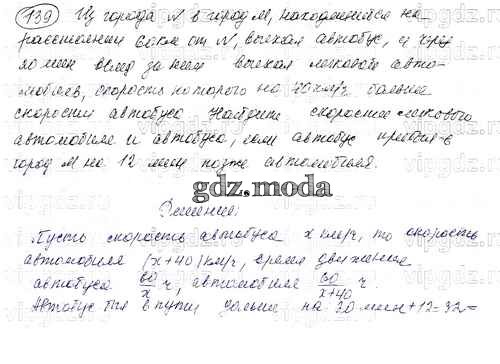 139) Из города N в город M, находящийся на
расстоянии 60км от N, выехал автобус, а через
20 мин вслед за ним выехал легковой авто-
мобиль, скорость которого на 40км/ч больше
скорости автобуса. Найдите скорости легкового
автомобиля и автобуса, если автобус прибыл в
город M на 12 мин позже автомобиля.
gdz.moda
Решение:
Пусть скорость автобуса x км/ч, то скорость
автомобиля (x+40)км/ч, время движения
автобуса 60/x ч, автомобиля 60/x+40 ч.
Автобус был в пути дольше на 20 мин+12=32=